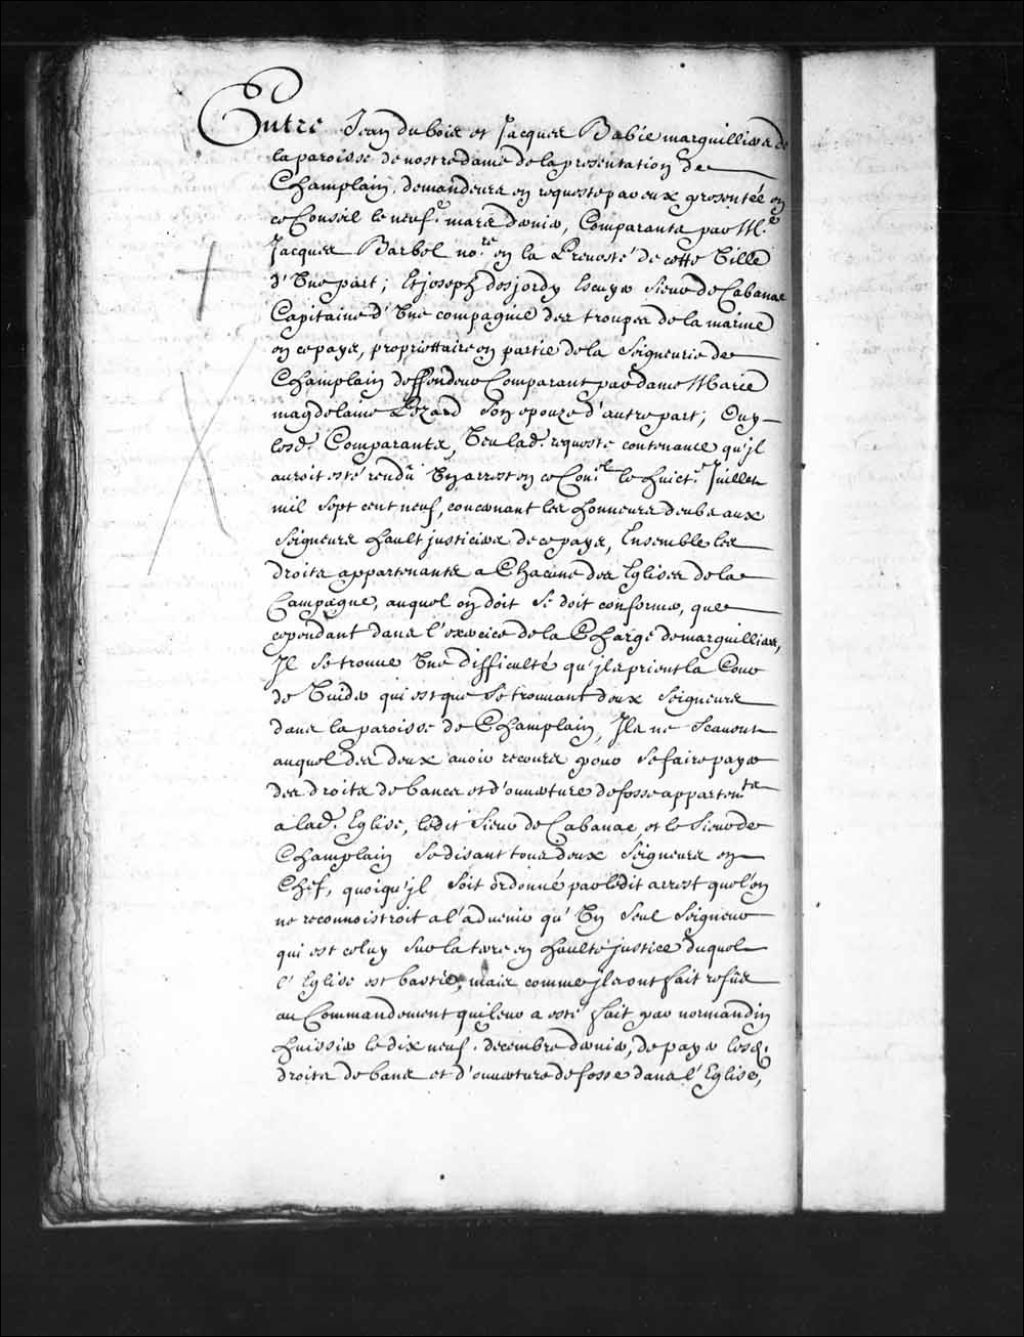 Entre Jean dubois et Jacques Babie marguilliers de
la paroisse de nostre dame de la presentation de
Champlain, demandeurs en requeste par eux presentée en
ce Conseil le neufe. mars dernier, Comparants par Me.
Jacques Barbel nore. en la Prevosté de cette Ville
d'Une part; Et joseph desjordy Escuyer Sieur de Cabanac
Capitaine d'Une compagnie des troupes de la marine
en ce pays, propriettaire en partie de la Seigneurie de
Champlain deffendeur Comparant par dame Marie
magdelaine Pezard Son epouze d'autre part; Ouy
lesd. Comparants, Veu lad. requeste contenance qu'jl
auroit esté rendû Un arrest en ce Conel. le huicte. Juillet
mil Sept cent neuf, concernant les honneurs deubs aux
Seigneurs hault justiciers de ce pays, Ensemble les
droits appartenants a Chacune des Eglises de la
Campagne, auquel on doit Se doit conformer, que
cependant dans l'exercice de la Charge de marguilliers,
Jl Se trouve Une difficulté qu'jls prient la Cour
de Vuider qui est que Se trouvant deux Seigneurs
dans la paroisse de Champlain, Jls ne Scavent
auquel des deux avoir recours pour Se faire payer
des droits de bancs et d'ouverture de fosse appartents
a lad. Eglise, ledit Sieur de Cabanac, et le Sieur de
Champlain Se disant tous deux Seigneurs en
Chef, quoiqu'jl Soit ordonné par ledit arrest que l'on
ne reconnoistroit a l'advenir qu'Un Seul Seigneur
qui est celuy Sur la terre en haulte justice duquel
l'Eglise est bastie, mais comme jls ont fait refus
au Commandement qui leur a esté fait par normandin
huissier le dix neufe. decembre dernier, de payer lesd.
droits de bancs et d'ouverture de fosse dans l'Eglise,